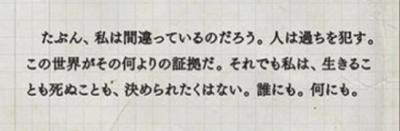 たぶん、私は間違っているのだろう。人は過ちを犯す。
この世界がその何よりの証拠だ。それでも私は、生きるこ
とも死ぬことも、決められたくはない。誰にも。何にも。